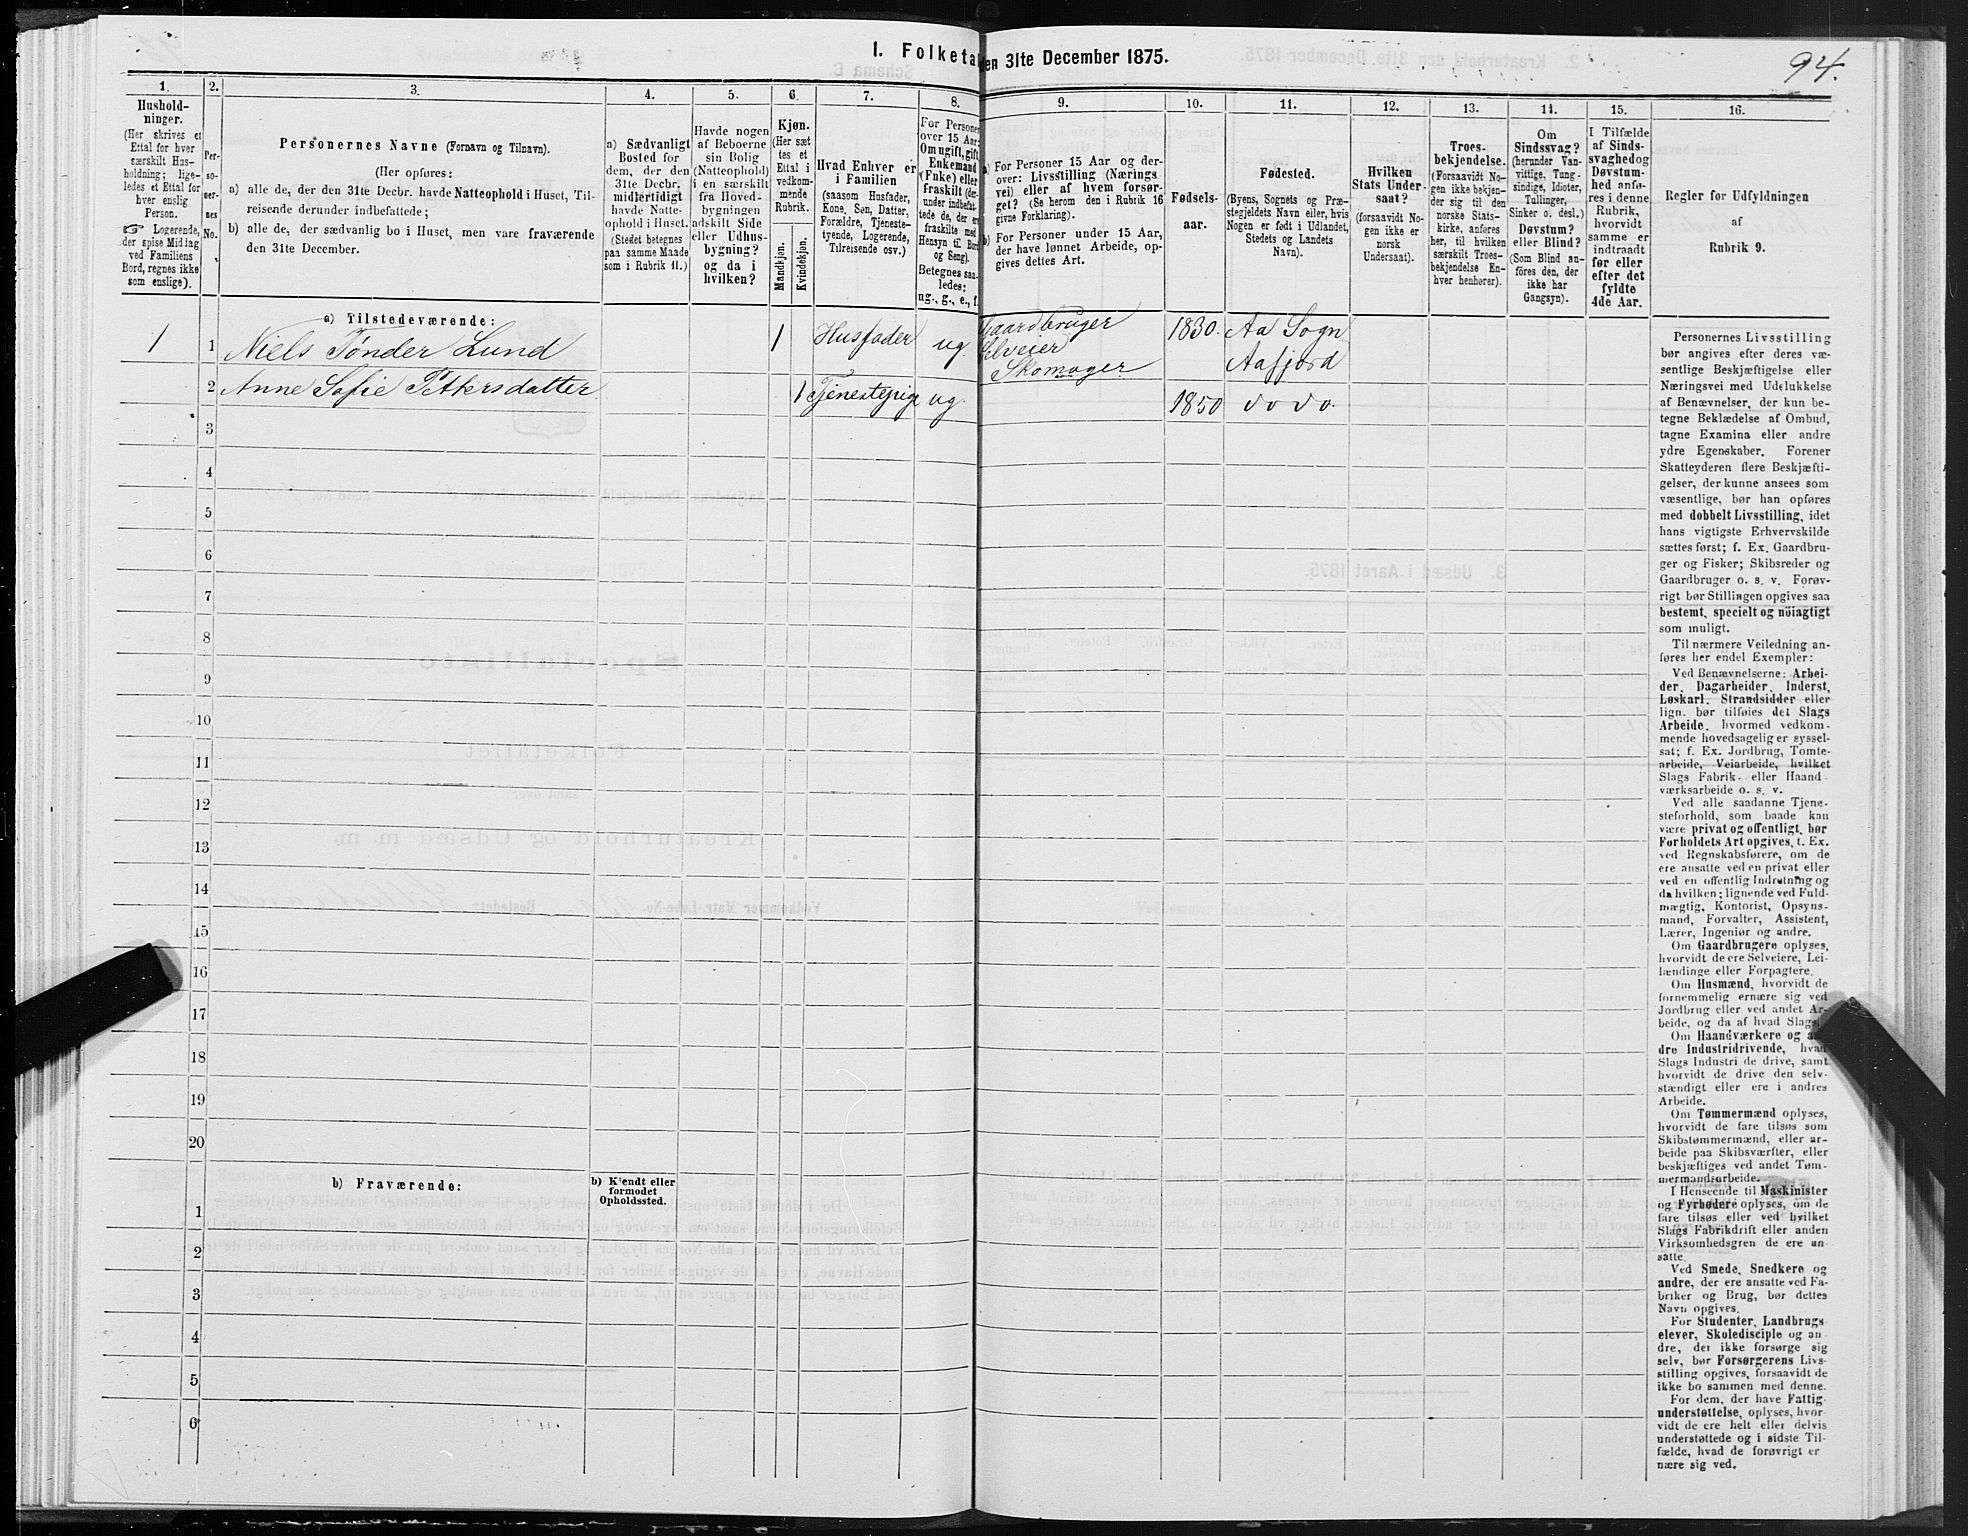 94.
1. Folketal den 31te December 1875.
1.
Hushold-
ninger.
(Her skrives et
Ettal for hver
særskilt Hus-
holdning; lige-
ledes et Ettal for
hver enslig
Person.
☞ Logerende,
der spise Middag
ved Familiens
Bord, regnes ikke
som enslige).
2.
Per-
so-
ner-
nes
No.
3.
Personernes Navne (Fornavn og Tilnavn).
(Her opføres:
a) alle de, der den 31te Decbr. havde Natteophold i Huset, Til-
reisende derunder indbefattede;
b) alle de, der sædvanlig bo i Huset, men vare fraværende
den 31te December.
4.
a) Sædvanligt
Bosted for
dem, der den
31te Decbr.
midlertidigt
havde Natte-
ophold i Huset.
(Stedet betegnes
paa samme Maade
som i Rubrik 11.)
5.
Havde nogen
af Beboerne
sin Bolig
(Natteophold)
i en særskilt
fra Hoved-
bygningen
adskilt Side
eller Udhus-
bygning?
og da i
hvilken?
6.
Kjøn.
(Her sæt
tes et
Ettal i
vedkom-
mende
Rubrik.
Mandkjøn.
Kvindekjøn.
7.
Hvad Enhver er
i Familien
(saasom Husfader,
Kone, Søn, Datter,
Forældre, Tjeneste-
tyende, Logerende,
Tilreisende osv.)
8.
For Personer
over 15 Aar:
Om ugift, gift,
Enkemand
(Enke) eller
fraskilt (der-
under indbefat-
tede de, der ere
fraskilte med
Hensyn til Bord
og Seng).
Betegnes saa-
ledes:
ug., g., e., f.
9.
a) For Personer 15 Aar og der-
over: Livsstilling (Nærings
vei) eller af hvem forsør-
get? (Se herom den i Rubrik 16
givne Forklaring).
b) For Personer under 15 Aar,
der have lønnet Arbeide, op-
gives dettes Art.
10.
Fødsels-
aar.
11.
Fødested.
(Byens, Sognets og Præ-
stegjeldets Navn eller, hvis
Nogen er født i Udlandet,
Stedets og Landets
Navn).
12.
Hvilken
Stats Under-
saat?
(forsaavidt No-
gen ikke er
norsk
Undersaat).
13.
Troes-
bekjendelse.
(Forsaavidt No-
gen ikke bekjen-
der sig til den
norske Stats-
kirke, anføres
her, til hvilken
særskilt Troes-
bekjendelse En-
hver henhører).
14.
Om
Sindssvag?
(herunder Van-
vittige, Tung-
sindige, Idioter,
Tullinger,
Sinker o. desl.)
Døvstum?
eller Blind?
(Som Blind an-
føres den, der
ikke har
Gangsyn).
15.
I Tilfælde
af Sinds-
svaghed og
Døvstum-
hed anfø-
res i denne
Rubrik,
hvorvidt
samme er
indtraadt
før eller
efter det
fyldte
4de Aar.
16.
Regler for Udfyldningen
af
Rubrik 9.
a) Tilstedeværende:
1 1 Niels Tønder Lund 1 Husfader ug. Gaardbruger 1830. Aa Sogn
Selveier
Skomager Aafjord
2 Anne Sofie Pettersdatter 1 Tjenestepige ug. 1850 do do.
3
4
5
6
7
8
9
10
11
12
13
14
15
16
17
18
19
20
b) Fraværende:
b) Kjendt eller
formodet
Opholdssted.
1
2
3
4
5
6
Personernes Livsstilling
bør angives efter deres væ-
sentlige Beskjæftigelse eller
Næringsvei med Udelukkelse
af Benævnelser, der kun be-
tegne Beklædelse af Ombud,
tagne Examina eller andre
ydre Egenskaber. Forener
Skatteyderen flere Beskjæfti-
gelser, der kunne ansees som
væsentlige, bør han opføres
med dobbelt Livsstilling, idet
hans vigtigste Erhvervskilde
sættes først; f. Ex. Gaardbru-
ger og Fisker; Skibsreder og
Gaardbruger o. s. v. Forøv-
rigt bør Stillingen opgives saa
bestemt, specielt og nöiagtigt
som muligt.
Til nærmere Veiledning an-
føres her endel Exempler:
Ved Benævnelserne: Arbei-
der, Dagarbeider, Inderst,
Løskarl, Strandsidder eller
lign. bør tilføies det Slags
Arbeide, hvormed vedkom-
mende hovedsagelig er syssel-
sat; f. Ex. Jordbrug, Tomte-
arbeide, Veiarbeide, hvilket
Slags Fabrik- eller Haand-
værksarbeide o. s. v.
Ved alle saadanne Tjene-
steforhold, som baade kan
være privat og offentligt, bør
Forholdets Art opgives, t. Ex.
ved Regnskabsførere, om de
ere ansatte ved en privat eller
ved en offentlig Indretning og
da hvilken; lignende ved Fuld-
mægtig, Kontorist, Opsyns-
mand, Forvalter, Assistent,
Lærer, Ingeniør og andre.
Om Gaardbrugere oplyses,
hvorvidt de ere Selveiere, Lei-
lændinge eller Forpagtere.
Om Husmænd, hvorvidt de
fornemmelig ernære sig ved
Jordbrug eller ved andet Ar-
beide, og da af hvad Slags.
Om Haandværkere og an-
dre Industridrivende, hvad
Slags Industri de drive, samt
hvorvidt de drive den selv-
stændigt eller ere i andres
Arbeide.
Om Tømmermænd oplyses,
hvorvidt de fare tilsøs som
Skibstømmermænd, eller ar-
beide paa Skibsværfter, eller
beskjæftiges ved andet Tøm-
mermandsarbeide.
I Henseende til Maskinister
og Fyrbødere oplyses, om de
fare tilsøs eller ved hvilket
Slags Fabrikdrift eller anden
Virksomhedsgren de ere an-
satte
Ved Smede, Snedkere og
andre, der ere ansatte ved Fa-
briker og Brug, bør dettes
Navn opgives.
For Studenter, Landbrugs-
elever, Skoledisciple og an-
dre, der ikke forsørge sig
selv, bør Forsørgerens Livs-
stilling opgives, forsaavidt de
ikke bo sammen med denne.
For dem, der have Fattig-
understøttelse, oplyses, hvor-
vidt de ere helt eller delvis
understøttede og i sidste Til-
fælde, hvad de forøvrigt er
nære sig ved.